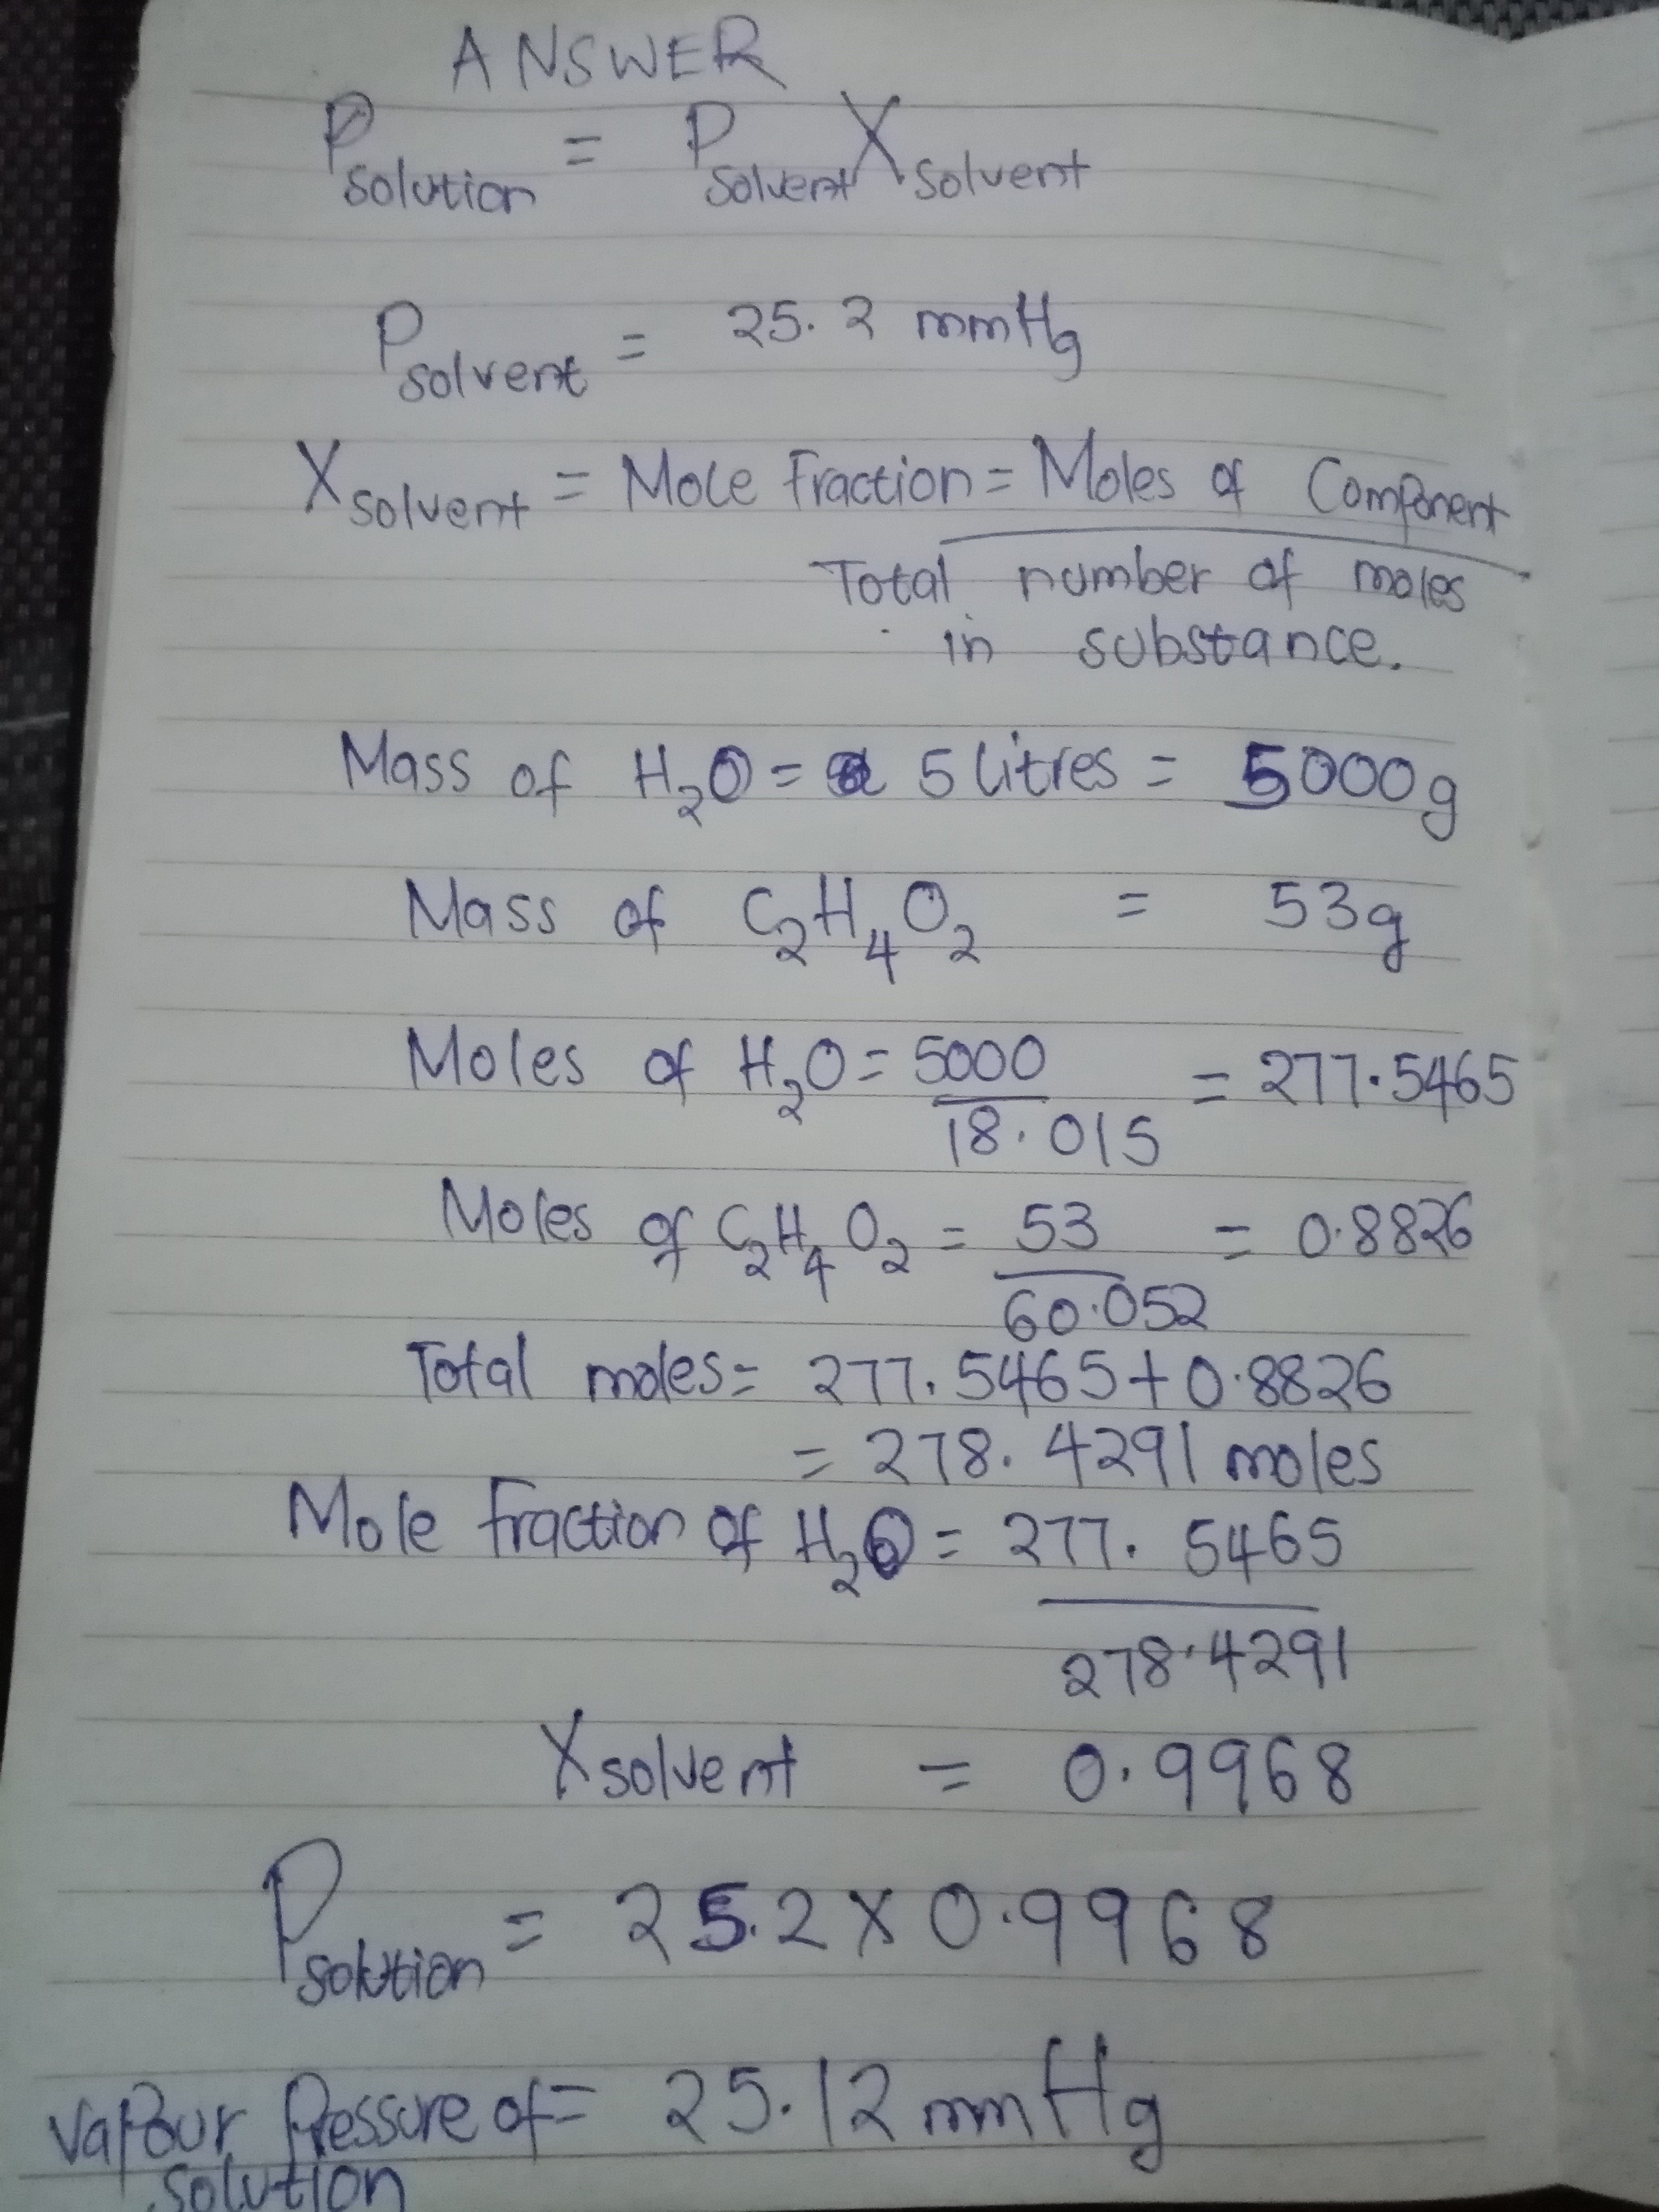 ANSWER
P solution = P solvent X solvent
P solvent = 25.2 mmHg
X solvent = Mole fraction = Moles of Component
Total number of moles
in substance.
Mass of H₂O = 5 litres = 5000g
Mass of C₂H₄O₂ = 53g
Moles of H₂O = 5000 = 277.5465
18.015
Moles of C₂H₄O₂ = 53 = 0.8826
60.052
Total moles = 277.5465 + 0.8826
= 278.4291 moles
Mole fraction of H₂O = 277.5465
278.4291
X solvent = 0.9968
P solution = 25.2 X 0.9968
Vapour Pressure of = 25.12 mmHg
solution